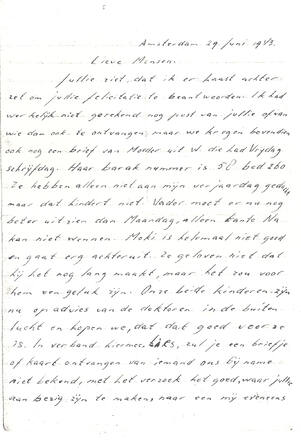 Amsterdam 29 Juni 1943.
Lieve Mensen.
Jullie ziet, dat ik er haast achter
zet om jullie felicitatie te beantwoorden. Ik had
werkelijk niet gerekend nog post van jullie of van
wie dan ook te ontvangen, maar we kregen bovendien
ook nog een brief van Moeder uit W. die had Vrijdag
schrijfdag. Haar barak nummer is 58 bed 260
Ze hebben alleen niet aan mijn verjaardag gedacht
maar dat hindert niet. Vader moet er nu nog
beter uitzien dan Maandag, alleen tante Na
kan niet wennen. Moki is helemaal niet goed
en gaat erg achteruit. Ze geloven niet dat
hij het nog lang maakt, maar het zou voor
hem een geluk zijn. Onze beide kinderen zijn
nu op advies van de doktoren in de buiten
lucht en hopen we, dat dat goed voor ze
is. In verband hiermee, zul je een briefje
of kaart ontvangen van iemand ons bij name
niet bekend, met het verzoek het goed, waar jullie
aan bezig zijn te maken, naar een mij eveneens